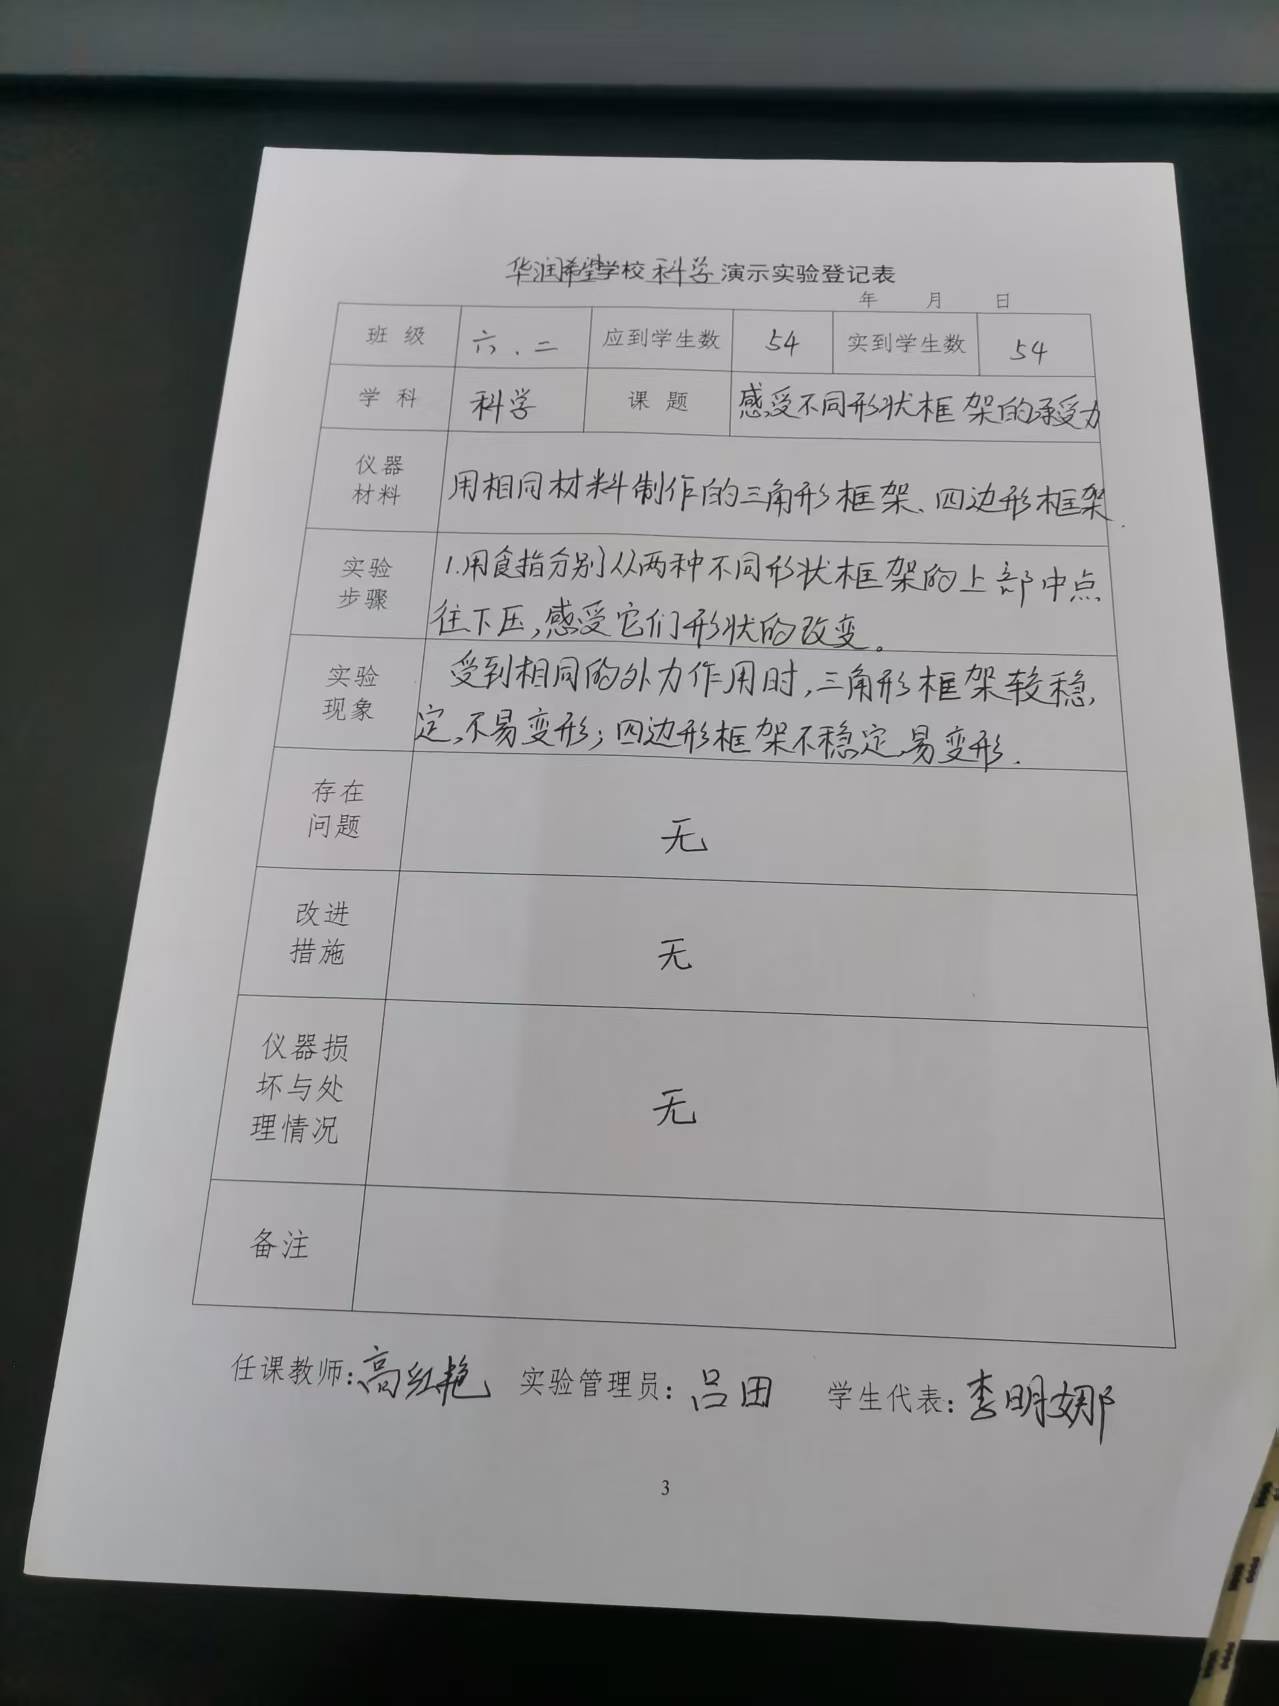 华润希望学校科学演示实验登记表
年 月 日
班 级 六.二 应到学生数 54 实到学生数 54
学 科 科学 课 题 感受不同形状框架的承受力
仪器
材料
用相同材料制作的三角形框架、四边形框架.
实验
步骤
1.用食指分别从两种不同形状框架的上部中点
往下压,感受它们形状的改变。
实验
现象
受到相同的外力作用时,三角形框架较稳
定,不易变形;四边形框架不稳定,易变形.
存在
问题
无
改进
措施
无
仪器损
坏与处
理情况
无
备注
任课教师:高红艳 实验管理员:吕田 学生代表:李明娜
3